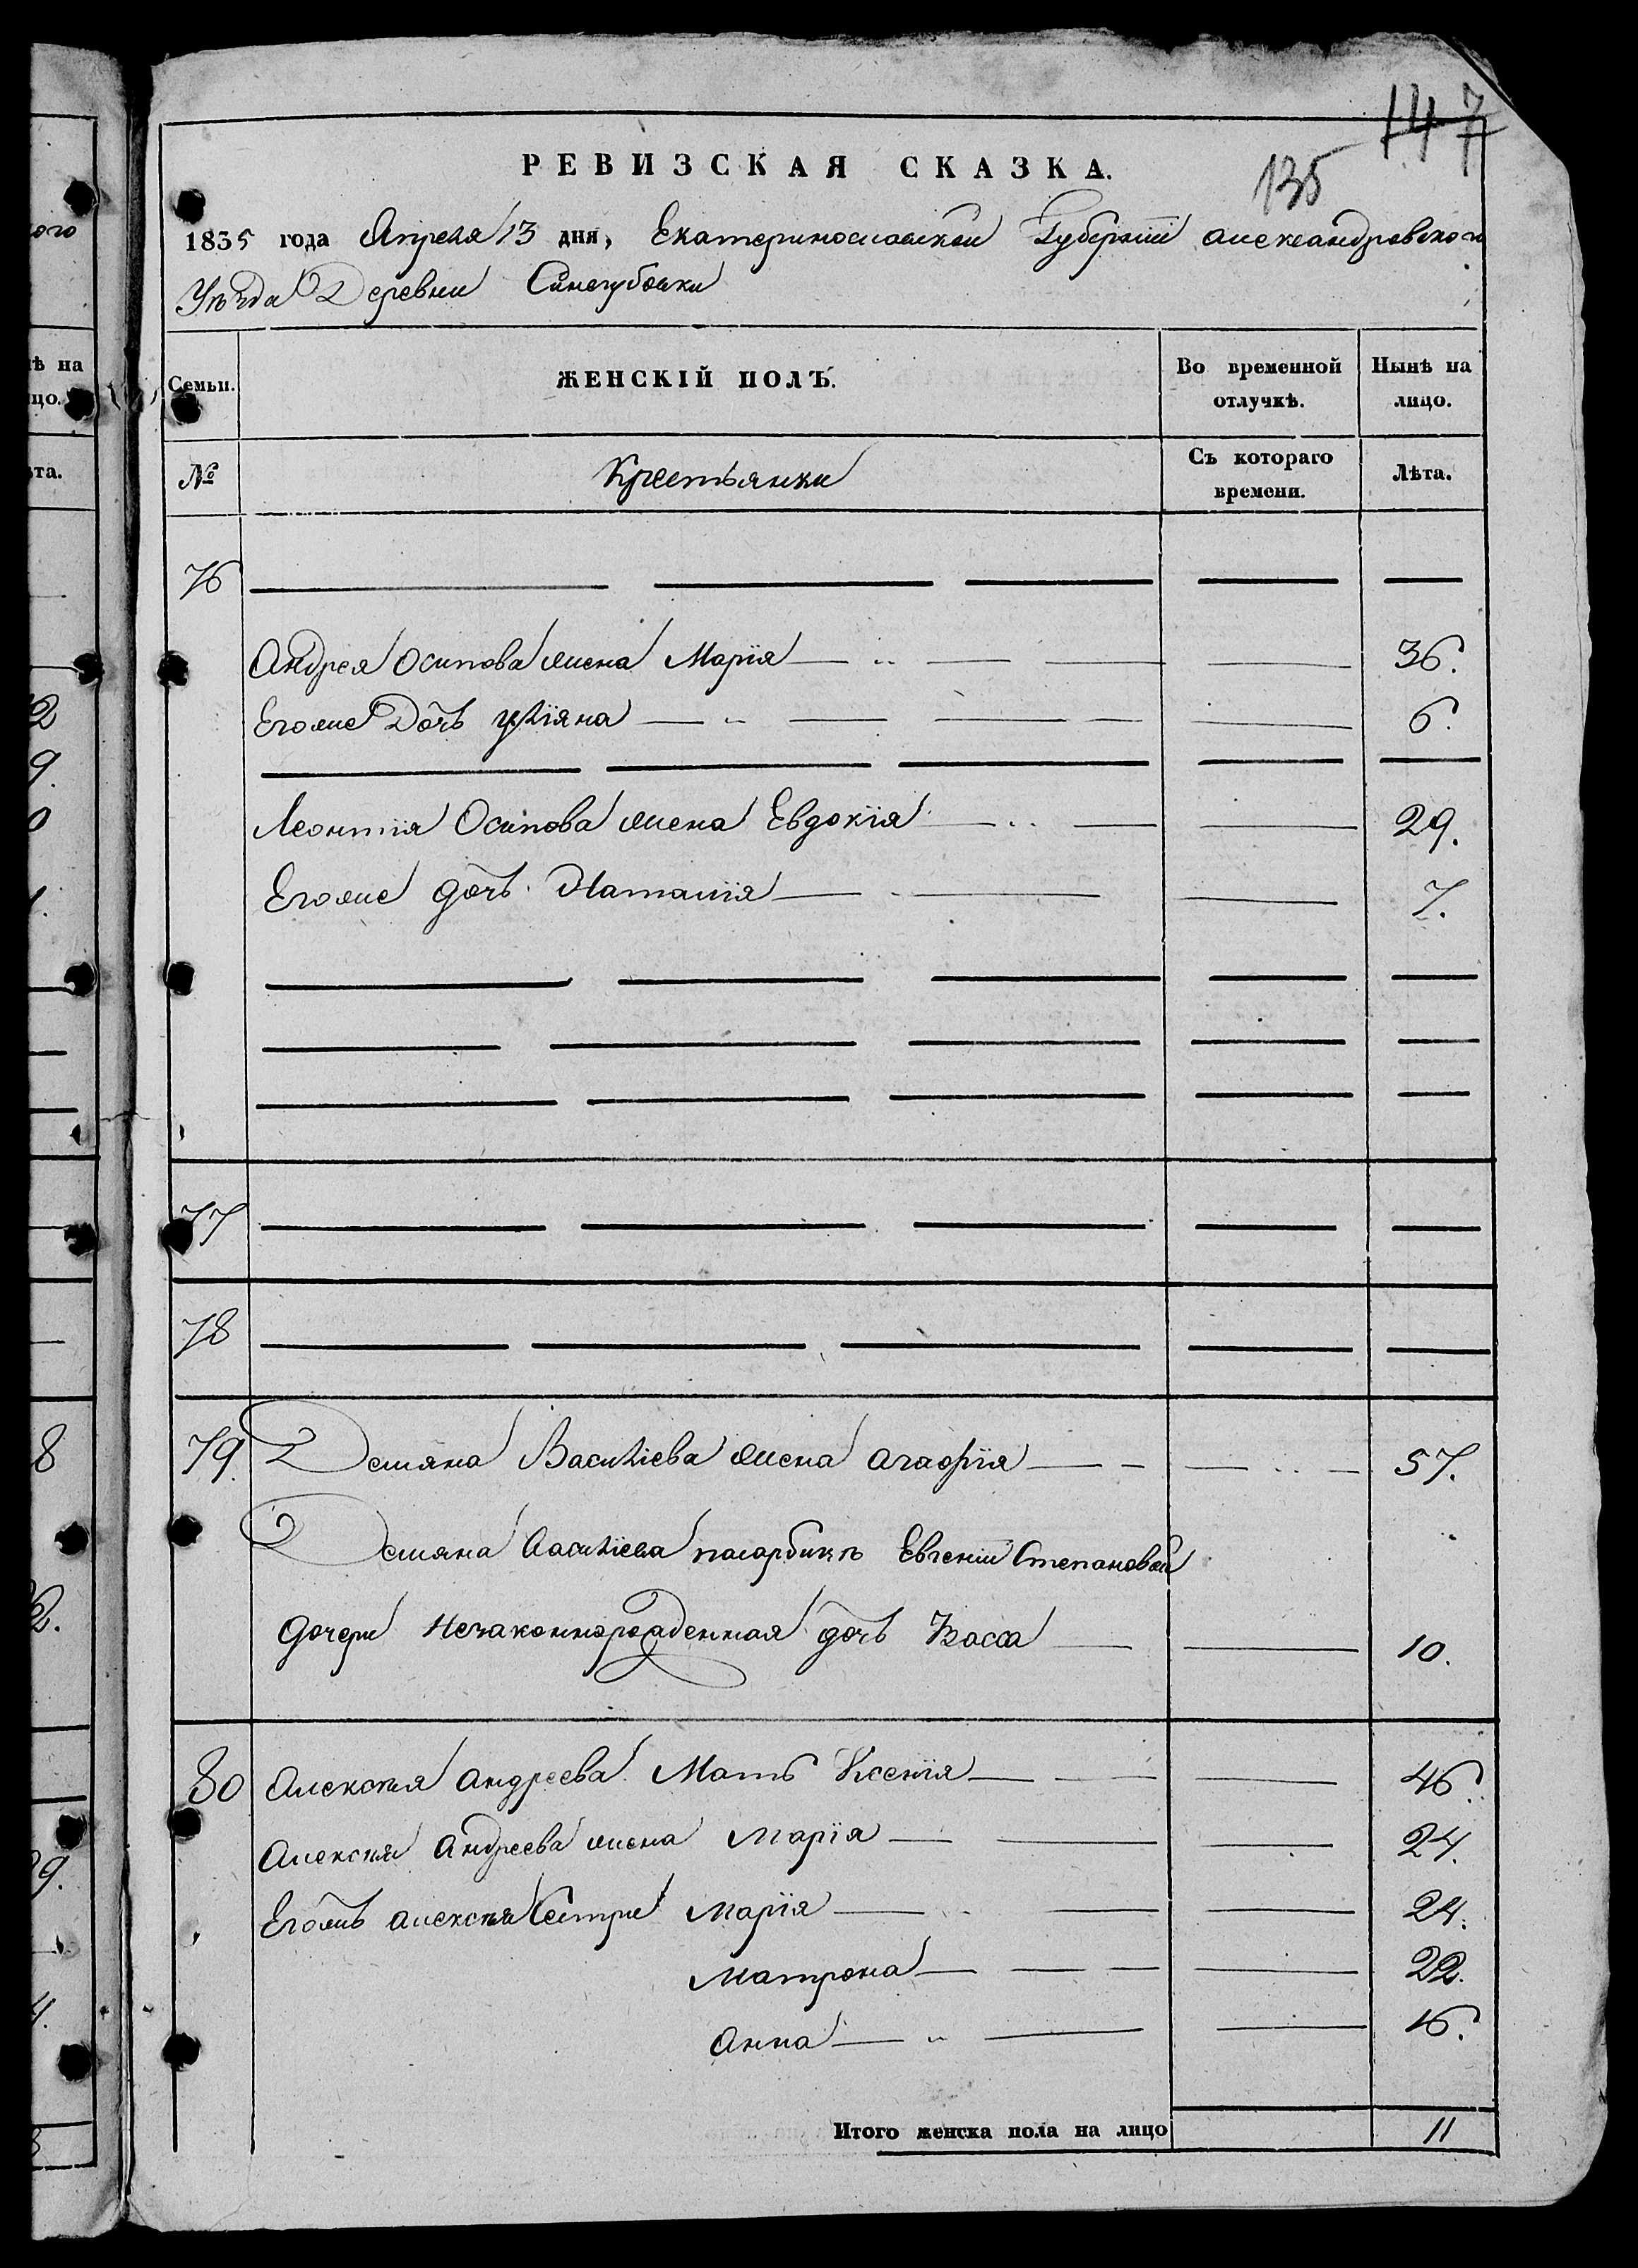 147
135
РЕВИЗСКАЯ СКАЗКА.
1835 года Апреля 13 дня, Екатеринославской Губерніи Александровского
Уѣзда Деревни Синегубовки
Семьи. ЖЕНСКІЙ ПОЛЪ. Во временной отлучкѣ. Нынѣ на лицо.
№ Крестьянки Съ котораго времени. Лѣта.
76
Андрея Осипова жена Марія 36.
Егоже Дочь Уліяна 6.
Леонтія Осипова жена Евдокія 29.
Егоже дочь Наталія 7.
77
78
79. Демяна Василіева жена Агафія 57.
Демяна Василіева Евгеніи Степановой
дочери незаконнорожденная дочь Васса 10.
80 Алексѣя Андреева Мать Ксенія 46.
Алексѣя Андреева жена Марія 24.
Егожъ Алексѣя Сестры Марія 24.
Матрона 22.
Анна 16.
Итого женска пола на лицо 11